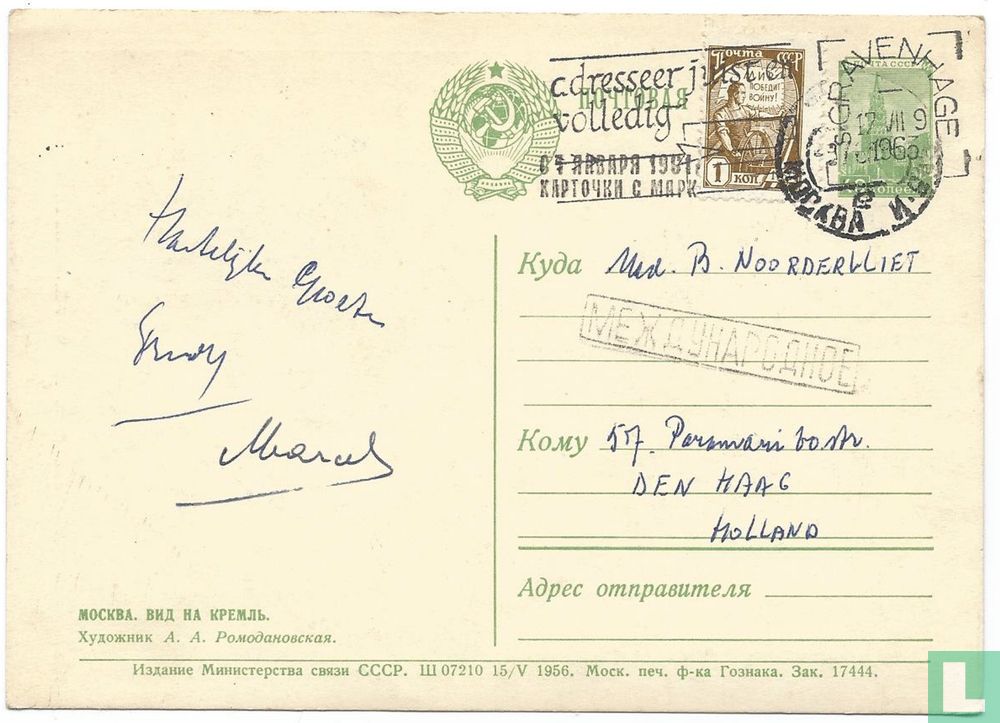 ПОЧТОВАЯ
adresseer juist en
volledig
ЯНВАРЯ 1961
КАРТОЧКИ С МАРК
Почта СССР
ДИЕ
ПОБЕДИТ
ВОЙНУ!
1 КОП
ПОЧТА СССР
'S-GRAVENHAGE
17 VII 9
196
МОСКВА
Hartelijke Groeten
Marcel
Куда Mad. B. NOORDERVLIET
МЕЖДУНАРОДНОЕ
Кому 57. Paramaribostr.
DEN HAAG
HOLLAND
Адрес отправителя
МОСКВА. ВИД НА КРЕМЛЬ.
Художник А. А. Ромодановская.
Издание Министерства связи СССР. Ш 07210 15/V 1956. Моск. печ. ф-ка Гознака. Зак. 17444.
L